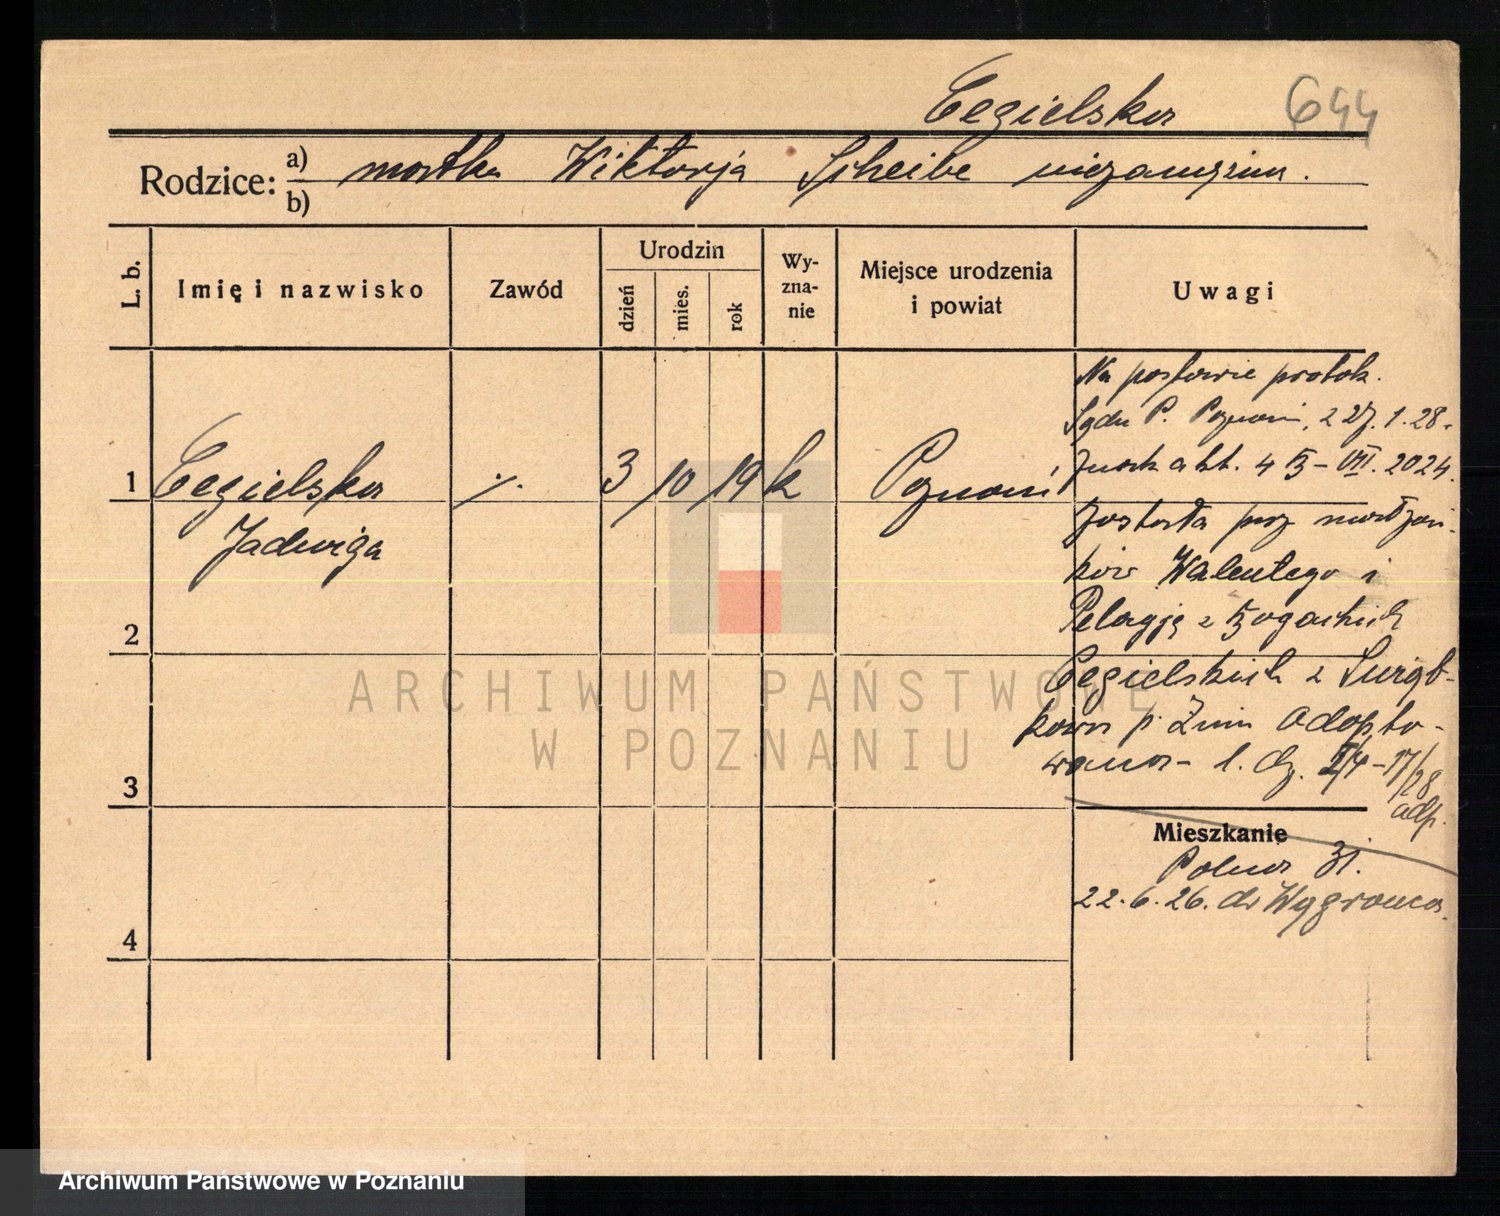 Cegielska 644
Rodzice: a) matka Wiktorja Scheibe niezamężna.
b)
L. b.
Imię i nazwisko
Zawód
Urodzin
dzień
mies.
rok
Wy-
zna-
nie
Miejsce urodzenia
i powiat
Uwagi
1 Cegielska ./. 3/10/19 k Poznań
Jadwiga
2
3
4
Na postawie protok.
Sądu P. Poznań, z 27.1.28.
Znak akt. 4 B - VII. 2024.
została prz małżon-
ków Walentego i
Pelagję z
Cegielskich z
p. Żnin adopto-
wana - l. dz. 17/28
adp.
Mieszkanie
Polna 31.
22.6.26. do Wągrowca.
ARCHIWUM PAŃSTWOWE
W POZNANIU
Archiwum Państwowe w Poznaniu